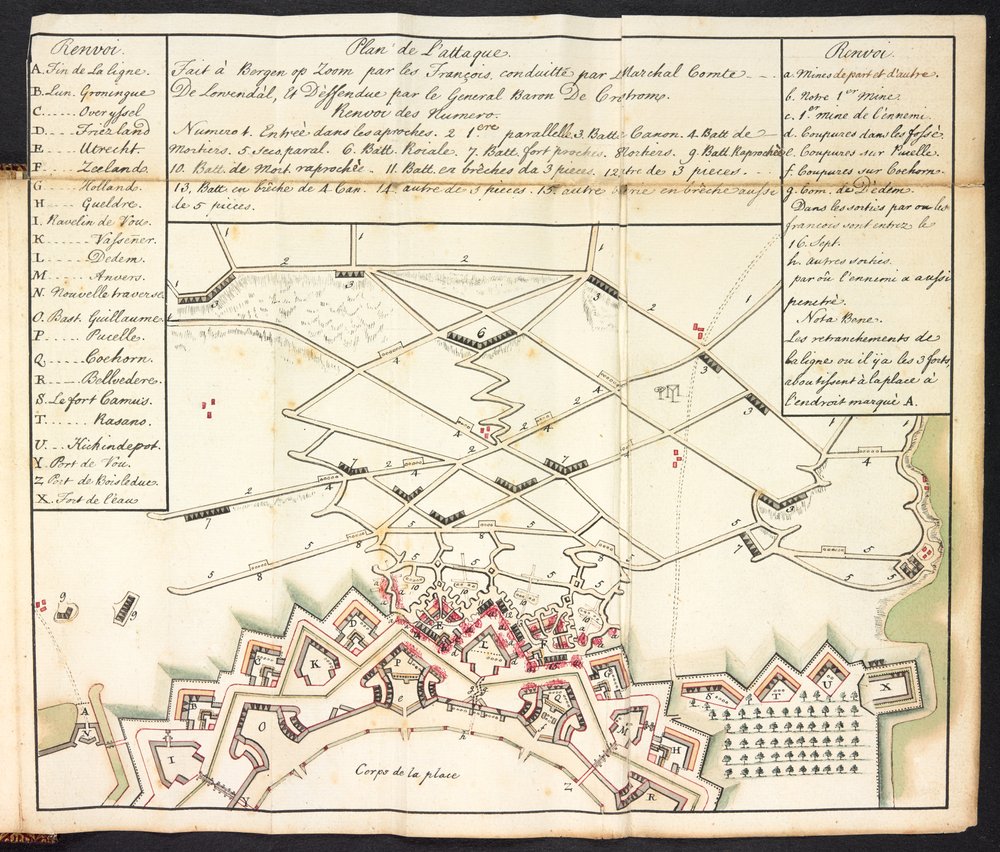 Renvoi.
A. Fin de La ligne.
B. Lun. Groningue
C ...... Overyssel
D ...... Friezland
E ...... Utrecht.
F ...... Zeeland
G ...... Holland.
H ...... Gueldre.
I. Ravelin de Vou.
K ...... Vassener.
L ...... Dedem.
M ...... Anvers.
N. Nouvelle traverse.
O. Bast. Guillaume
P ...... Pucelle.
Q ...... Coehorn.
R ...... Bellvedere.
S. Le fort Camus.
T ...... Rasano.
U ... Kickindepot.
Y. Port de Vou.
Z Port de Boisleduc.
X. Fort de l'eau
Plan de L'attaque.
Fait à Bergen op Zoom par les François, conduitte par Marchal Comte
De Lovendál, Et Deffendue par le General Baron De Crotrom.
Renvoi des Numero.
Numero 1. Entrée dans les aproches. 2 1ere parallelle. 3. Battr Canon. 4. Batt de
Mortiers. 5. secs. paral. 6. Batt. Roiale. 7. Batt. fort proches. 8 Mortiers. 9. Batt Raprochée
10. Batt de Mort. raprochée. 11. Batt. en brêches da 3 pieces. 12 tre de 3 pieces.
13. Batt en brêche de 4 Can. 14. autre de 3 pieces. 15. autre en brêche aussi
de 5 pieces.
Renvoi.
a. Mines de part et d'autre.
b. Notre 1er Mine.
c. 1er mine de l'ennemi.
d. Coupures dans les fossé.
e. Coupures sur Pucelle.
f. Coupures sur Coehorn.
g. Com. de Dedem.
Dans les sorties par ou les
francois sont entrez le
16. Sept.
h. autres sorties.
par où l'ennemi a aussi
penetré.
Nota Bene.
Les retranchements de
La ligne ou il y a les 3 forts,
aboutissent à la place à
l'endroit marqué A.
1 1 1 1
2 2 2 2
3 3 3 3 3 3
4 4 4 4 4
5 5 5 5 5 5
6
7 7 7 7
8 8
9 9
10 10 10
A N B C D E F G H
I K L M
O P Q R
S T U X
Y Z
e h
Corps de la place